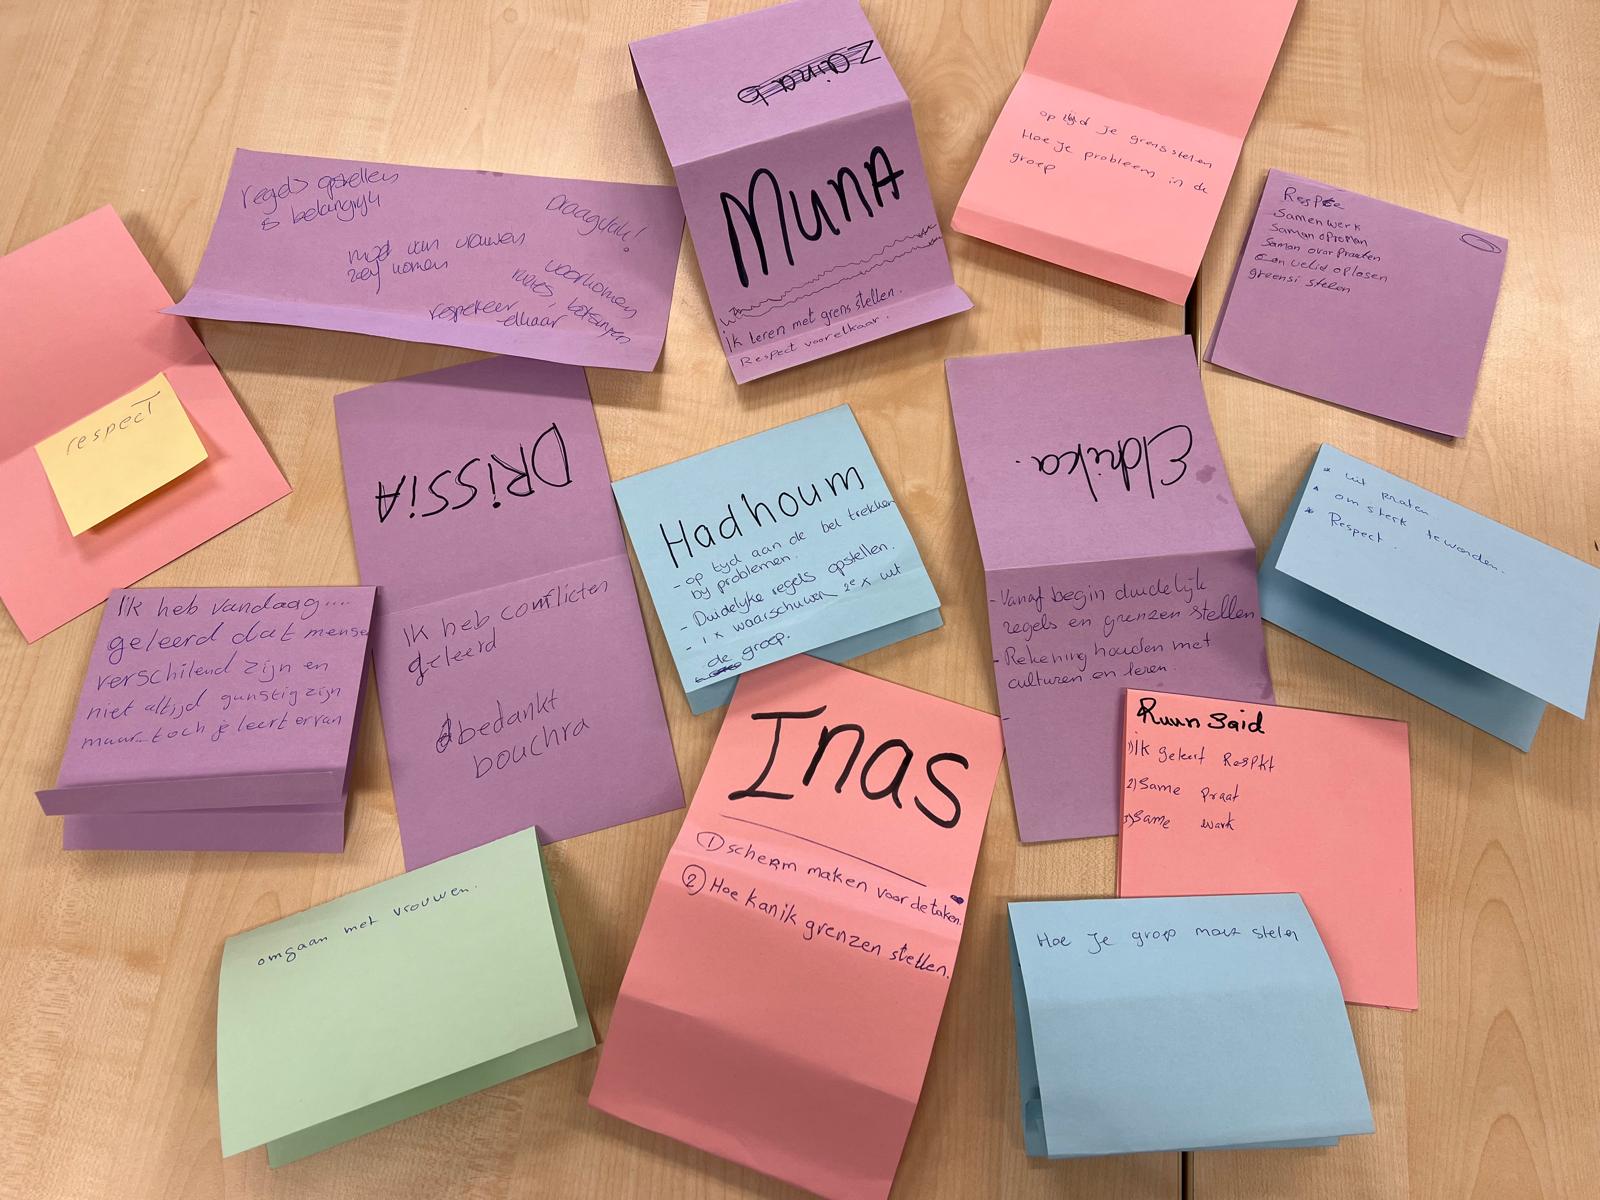 Zainab
Muna
ik leren met grens stellen.
Respect voor elkaar.
op tijd je grens stellen
Hoe je probleem in de
groep
regels opstellen
is belangrijk
Draagvlak!
moet van vrouwen
zelf komen
voorkomen
respekeer
elkaar
Samen werk
Saman opreman
Saman overpraaten
greensi stelen
respect
DRiSSiA
Ik heb conflicten
geleerd
bedankt
bouchra
Hadhoum
- op tyd aan de bel trekken
by problemen.
- Duidelyke regels opstellen.
- 1 x waarschuwen 2e x uit
de groep.
Eldrika.
- Vanaf begin duidelijk
regels en grenzen stellen
- Rekening houden met
culturen en leren.
-
* uit praten
* om sterk teworden.
* Respect.
Ik heb vandaag....
geleerd dat mense
verschilend zijn en
niet altijd gunstig zijn
maar...toch je leert ervan
Inas
① scherm maken voor de taken.
② Hoe kan ik grenzen stellen.
Ruun Said
1) ik geleert Respkt
2) Same praat
3) Same wark
omgaan met vrouwen.
Hoe je groep moet stelen